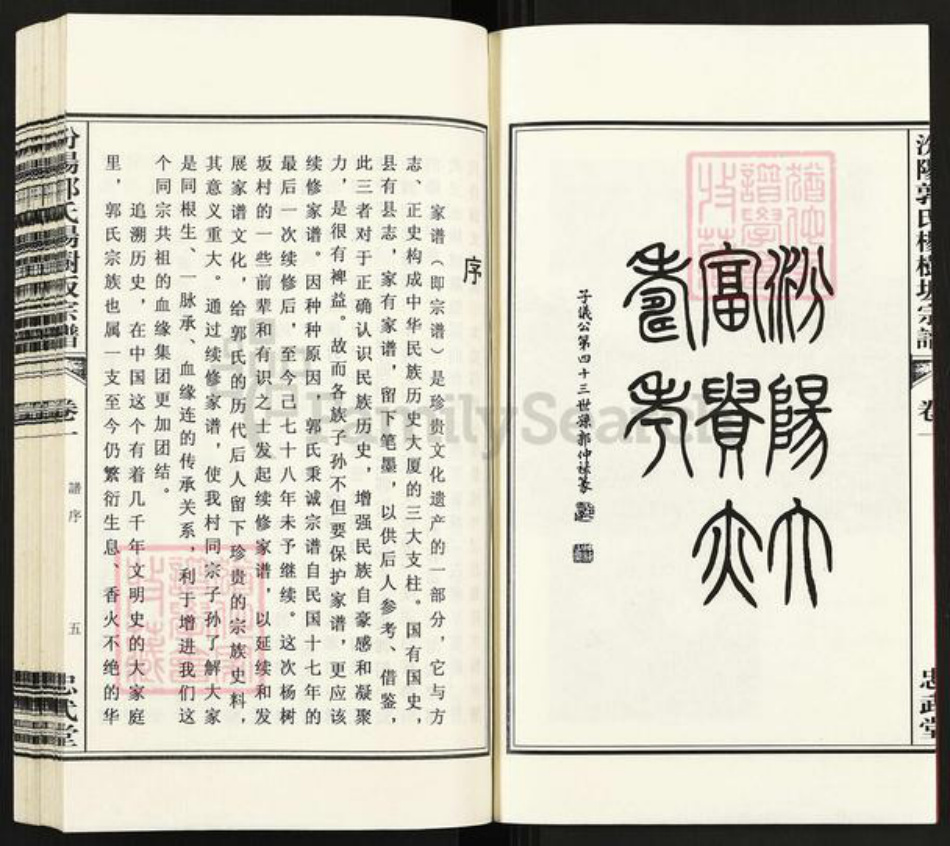 汾陽郭氏楊樹坂宗譜
卷一
忠武堂
汾陽六
富貴亦
壽考
子儀公第四十三世孫郭仲禄篆
序
家谱（即宗谱）是珍贵文化遗产的一部分，它与方
志、正史构成中华民族历史大厦的三大支柱。国有国史，
县有县志，家有家谱，留以笔墨，以供后人参考、借鉴，
此三者对于正确认识民族历史，增强民族自豪感和凝聚
力，是很有裨益。故而各族子孙不但要保护家谱，更应该
续修家谱。因种种原因，郭氏秉诚宗谱自民国十七年的
最后一次续修后，至今己七十八年未予继续。这次杨树
坂村的一些前辈和有识之士发起续修家谱，以延续和发
展家谱文化，给郭氏的历代后人留下珍贵的宗族史料，
其意义重大。通过续修家谱，使我村同宗子孙了解大家
是同根生、一脉承、血缘连的传承关系，利于增进我们这
个同宗共祖的血缘集团更加团结。
追溯历史，在中国这个有着几千年文明史的大家庭
里，郭氏宗族也属一支至今仍繁衍生息、香火不绝的华
汾陽郭氏楊樹坂宗譜
卷一
譜序
五
忠武堂
FamilySearch